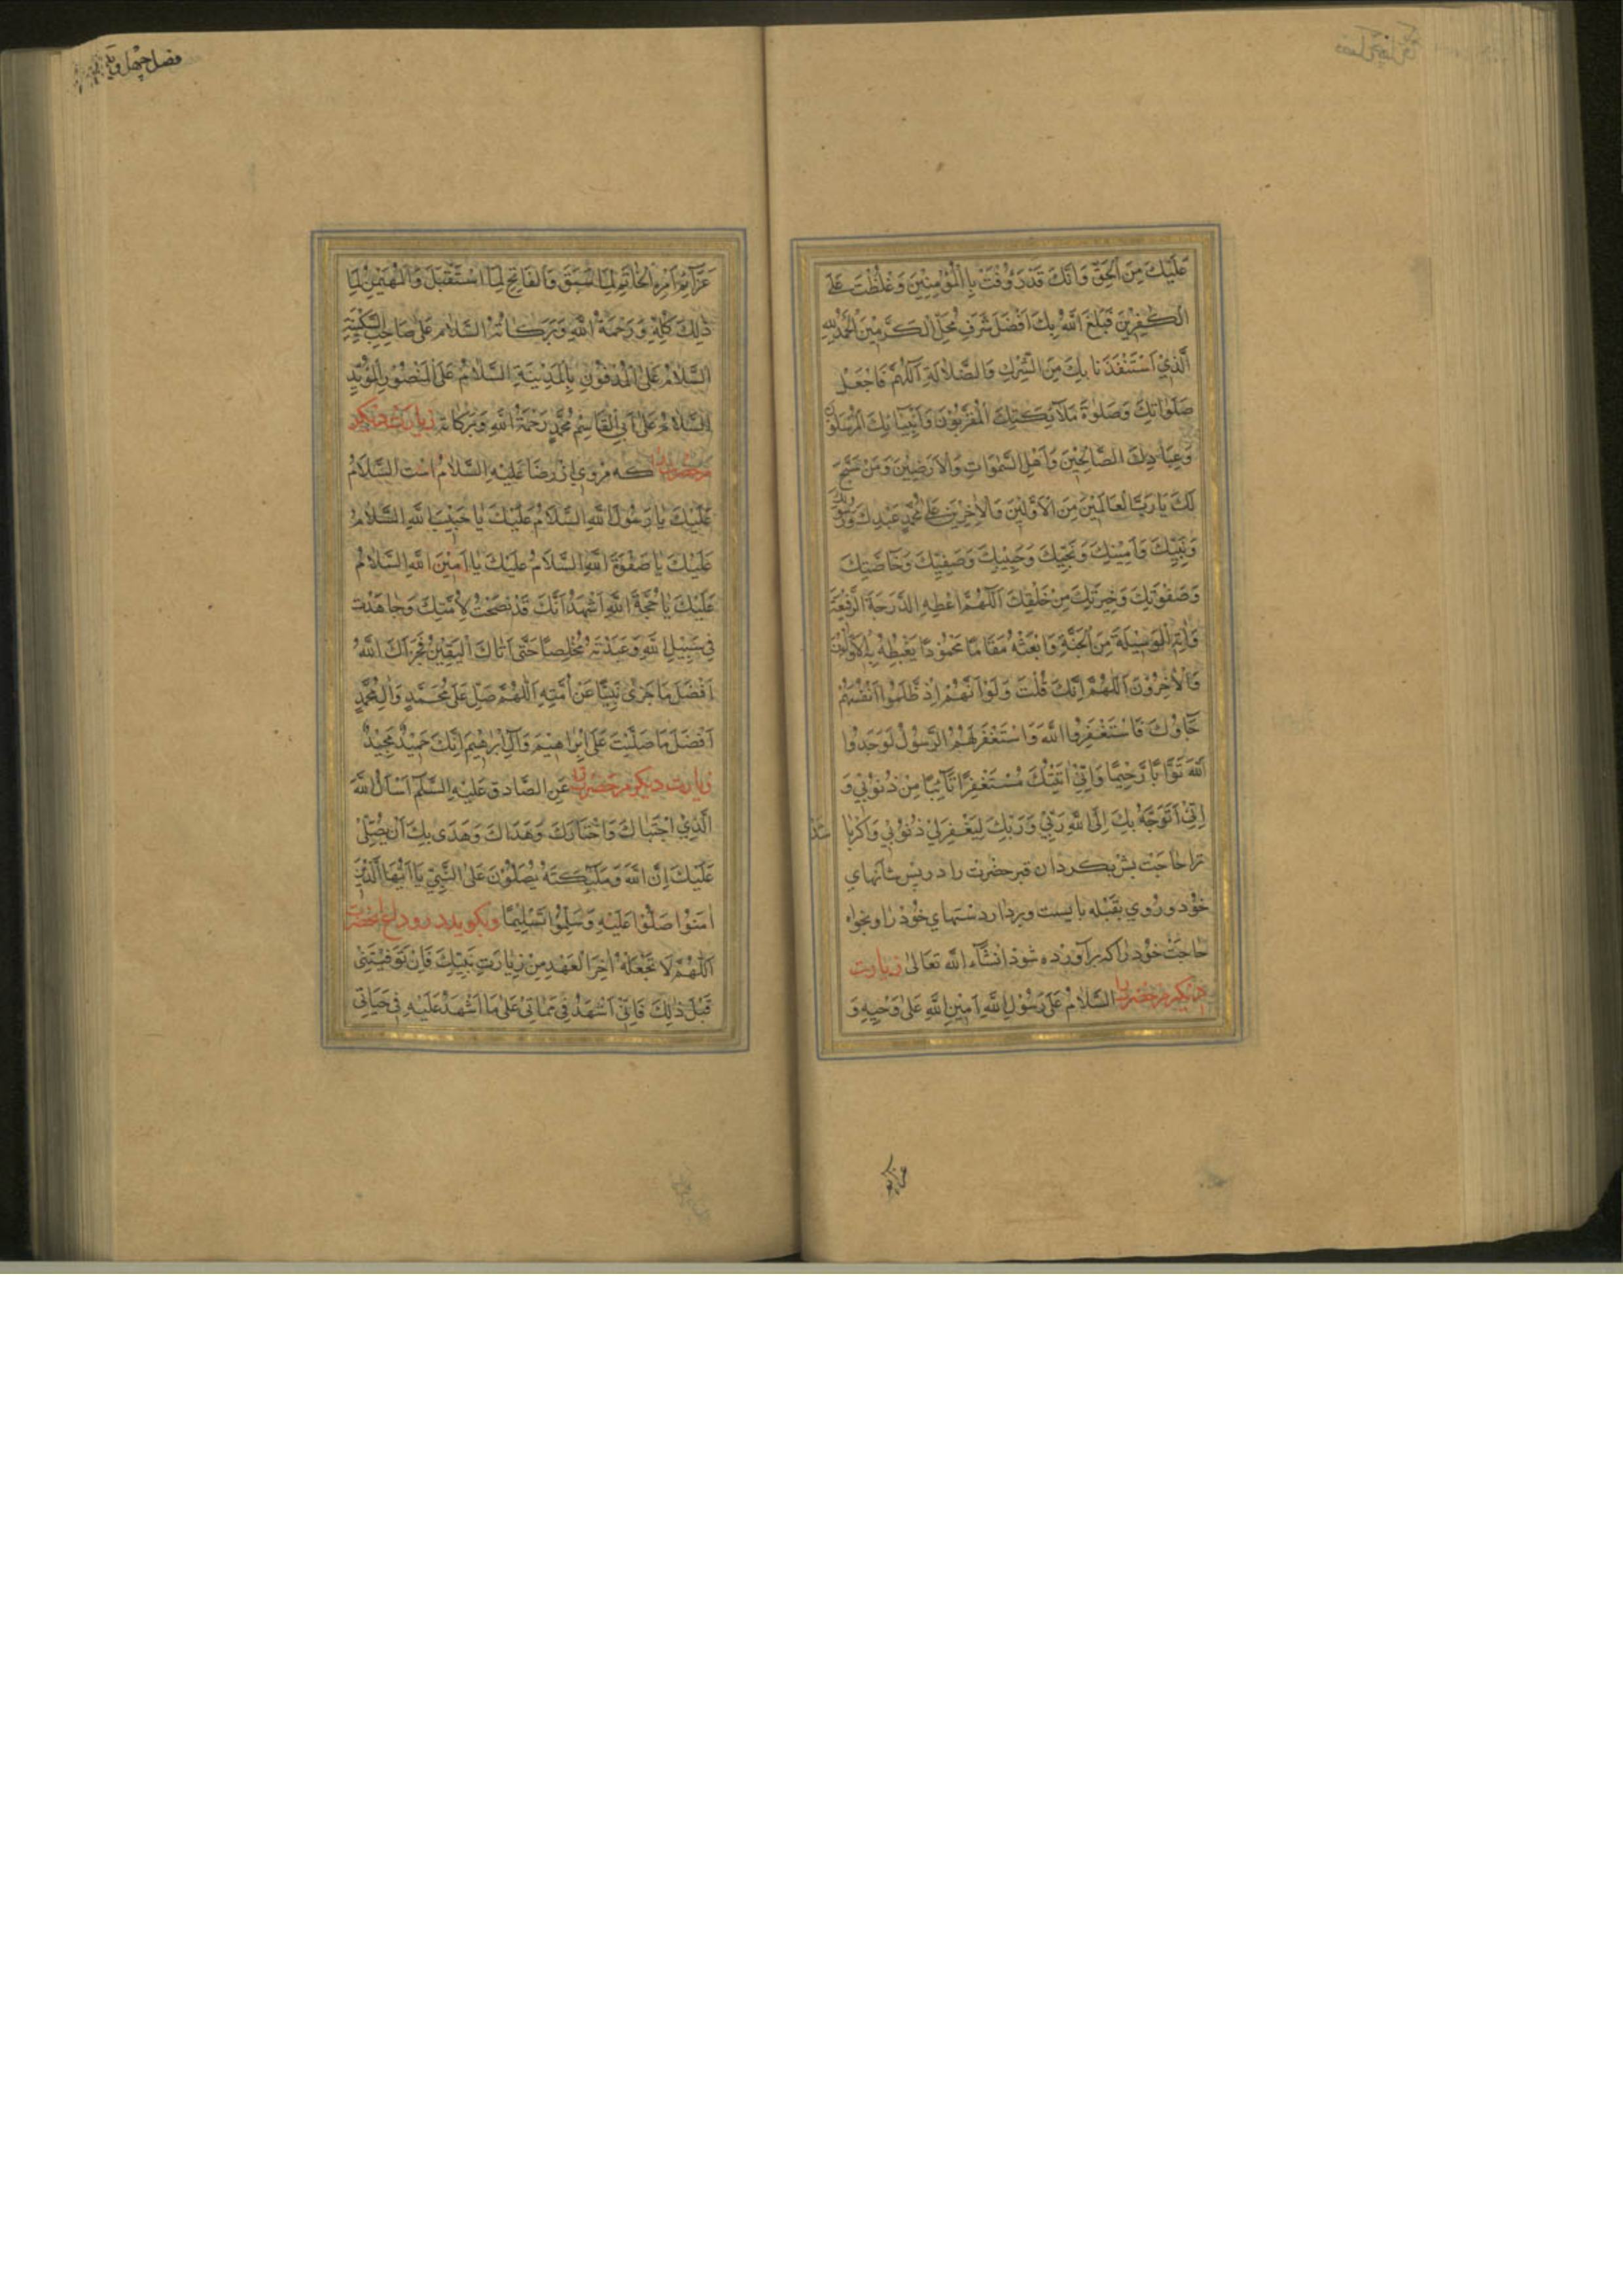 عَلَيْكَ مِنَ الْحَقِّ وَاَنَّكَ قَدْ رَوُفْتَ بِالْمُؤْمِنِيْنَ وَغَلُظْتَ عَلَى
الْكٰفِرِيْنَ فَبَلَغَ اللّٰهُ بِكَ اَفْضَلَ شَرَفِ مَحَلِّ الْمُكَرَّمِيْنَ اَلْحَمْدُ لِلّٰهِ
الَّذِيْ اسْتَنْقَذَنَا بِكَ مِنَ الشِّرْكِ وَالضَّلَالَةِ اَللّٰهُمَّ فَاجْعَلْ
صَلَوَاتِكَ وَصَلٰوةَ مَلَآئِكَتِكَ الْمُقَرَّبُوْنَ وَاَنْبِيَآئِكَ الْمُرْسَلُوْنَ
وَعِبَادِكَ الصَّالِحِيْنَ وَاَهْلِ السَّمٰوَاتِ وَالْاَرَضِيْنَ وَمَنْ سَبَّحَ
لَكَ يَا رَبَّ الْعَالَمِيْنَ مِنَ الْاَوَّلِيْنَ وَالْاٰخِرِيْنَ عَلٰى مُحَمَّدٍ عَبْدِكَ وَرَسُوْلِكَ
وَنَبِيِّكَ وَاَمِيْنِكَ وَنَجِيِّكَ وَحَبِيْبِكَ وَصَفِيِّكَ وَخَاصَّتِكَ
وَصَفْوَتِكَ وَخِيَرَتِكَ مِنْ خَلْقِكَ اَللّٰهُمَّ اَعْطِهِ الدَّرَجَةَ الرَّفِيْعَةَ
وَاٰتِهِ الْوَسِيْلَةَ مِنَ الْجَنَّةِ وَابْعَثْهُ مَقَامًا مَحْمُوْدًا يَغْبِطُهُ بِهِ الْاَوَّلُوْنَ
وَالْاٰخِرُوْنَ اَللّٰهُمَّ اِنَّكَ قُلْتَ وَلَوْ اَنَّهُمْ اِذْ ظَلَمُوا اَنْفُسَهُمْ
جَآؤُكَ فَاسْتَغْفَرُوا اللّٰهَ وَاسْتَغْفَرَ لَهُمُ الرَّسُوْلُ لَوَجَدُوا
اللّٰهَ تَوَّابًا رَّحِيْمًا وَاِنِّيْ اَتَيْتُكَ مُسْتَغْفِرًا تَآئِبًا مِنْ ذُنُوْبِيْ وَ
اِنِّيْ اَتَوَجَّهُ بِكَ اِلَى اللّٰهِ رَبِّيْ وَرَبِّكَ لِيَغْفِرَ لِيْ ذُنُوْبِيْ وَاكر با شد
ترا حاجت بس بكردان قبر حضرت را در پس شانهاى
خود و روى بقبله بايست و بردار دستهاى خود را و بخواه
حاجت خود را كه برآورده شود انشاء الله تعالى زيارت
ديكر مر حضرت را السَّلَامُ عَلٰى رَسُوْلِ اللّٰهِ اَمِيْنِ اللّٰهِ عَلٰى وَحْيِهِ وَ
عزائم
فصل چهل و
عَزَآئِمِ اَمْرِهِ الْخَاتِمِ لِمَا سَبَقَ وَالْفَاتِحِ لِمَا اسْتُقْبِلَ وَالْمُهَيْمِنِ لِمَا
ذٰلِكَ كُلِّهِ وَرَحْمَةُ اللّٰهِ وَبَرَكَاتُهُ السَّلَامُ عَلٰى صَاحِبِ السَّكِيْنَةِ
السَّلَامُ عَلَى الْمَدْفُوْنِ بِالْمَدِيْنَةِ السَّلَامُ عَلَى الْمَنْصُوْرِ الْمُؤَيَّدِ
السَّلَامُ عَلٰى اَبِي الْقَاسِمِ مُحَمَّدٍ رَحْمَةُ اللّٰهِ وَبَرَكَاتُهُ زيارت ديكر
مر حضرت را كه مروى از رضا عَلَيْهِ السَّلَامُ است السَّلَامُ
عَلَيْكَ يَا رَسُوْلَ اللّٰهِ السَّلَامُ عَلَيْكَ يَا حَبِيْبَ اللّٰهِ السَّلَامُ
عَلَيْكَ يَا صَفْوَةَ اللّٰهِ السَّلَامُ عَلَيْكَ يَا اَمِيْنَ اللّٰهِ السَّلَامُ
عَلَيْكَ يَا حُجَّةَ اللّٰهِ اَشْهَدُ اَنَّكَ قَدْ نَصَحْتَ لِاُمَّتِكَ وَجَاهَدْتَ
فِيْ سَبِيْلِ اللّٰهِ وَعَبَدْتَهُ مُخْلِصًا حَتّٰى اَتَاكَ الْيَقِيْنُ فَجَزَاكَ اللّٰهُ
اَفْضَلَ مَا جَزٰى نَبِيًّا عَنْ اُمَّتِهِ اَللّٰهُمَّ صَلِّ عَلٰى مُحَمَّدٍ وَاٰلِ مُحَمَّدٍ
اَفْضَلَ مَا صَلَّيْتَ عَلٰى اِبْرَاهِيْمَ وَاٰلِ اِبْرٰهِيْمَ اِنَّكَ حَمِيْدٌ مَجِيْدٌ
زيارت ديكر مر حضرت را عَنِ الصَّادِقِ عَلَيْهِ السَّلَمُ اَسْاَلُ اللّٰهَ
الَّذِيْ اجْتَبَاكَ وَاخْتَارَكَ وَهَدَاكَ وَهَدٰى بِكَ اَنْ يُصَلِّيَ
عَلَيْكَ اِنَّ اللّٰهَ وَمَلٰٓئِكَتَهُ يُصَلُّوْنَ عَلَى النَّبِيِّ يَا اَيُّهَا الَّذِيْنَ
اٰمَنُوْا صَلُّوْا عَلَيْهِ وَسَلِّمُوْا تَسْلِيْمًا و بكويد در وداع آنحضرت
اَللّٰهُمَّ لَا تَجْعَلْهُ اٰخِرَ الْعَهْدِ مِنْ زِيَارَتِ نَبِيِّكَ فَاِنْ تَوَفَّيْتَنِيْ
قَبْلَ ذٰلِكَ فَاِنِّيْ اَشْهَدُ فِيْ مَمَاتِيْ عَلٰى مَا اَشْهَدُ عَلَيْهِ فِيْ حَيَاتِيْ